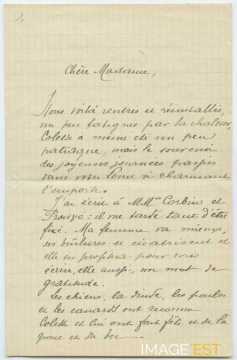 Chère Madame,
Nous voilà rentrés et réinstallés,
un peu fatigués par la chaleur,
Colette a même été un peu
patraque, mais le souvenir
des joyeuses journées passées
dans son home si charmant
l'emporte.
J'ai écrit à M. Corbin et
: il me tarde tant d'être
fixé. Ma femme va mieux,
ses se cicatrisent et
elle en profite pour vous
écrire, elle aussi, un mot de
gratitude.
Les chiens, la dinde, les poules
et les canards ont reconnu
Colette et lui ont fait fête et de la
queue et du bec
IMAGE'EST